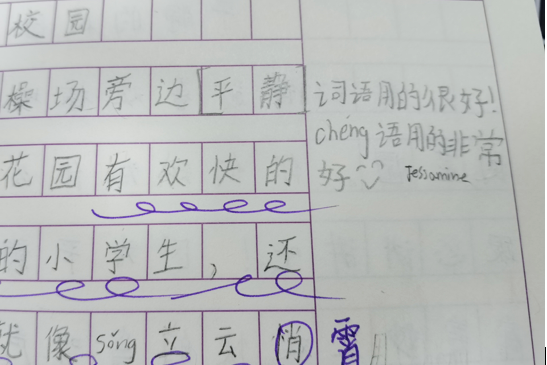 校园
操场旁边平静
花园有欢快的
的小学生，还
就像sǒng立云悄
词语用的很好！
chéng语用的非常
好
Jessamine
霄